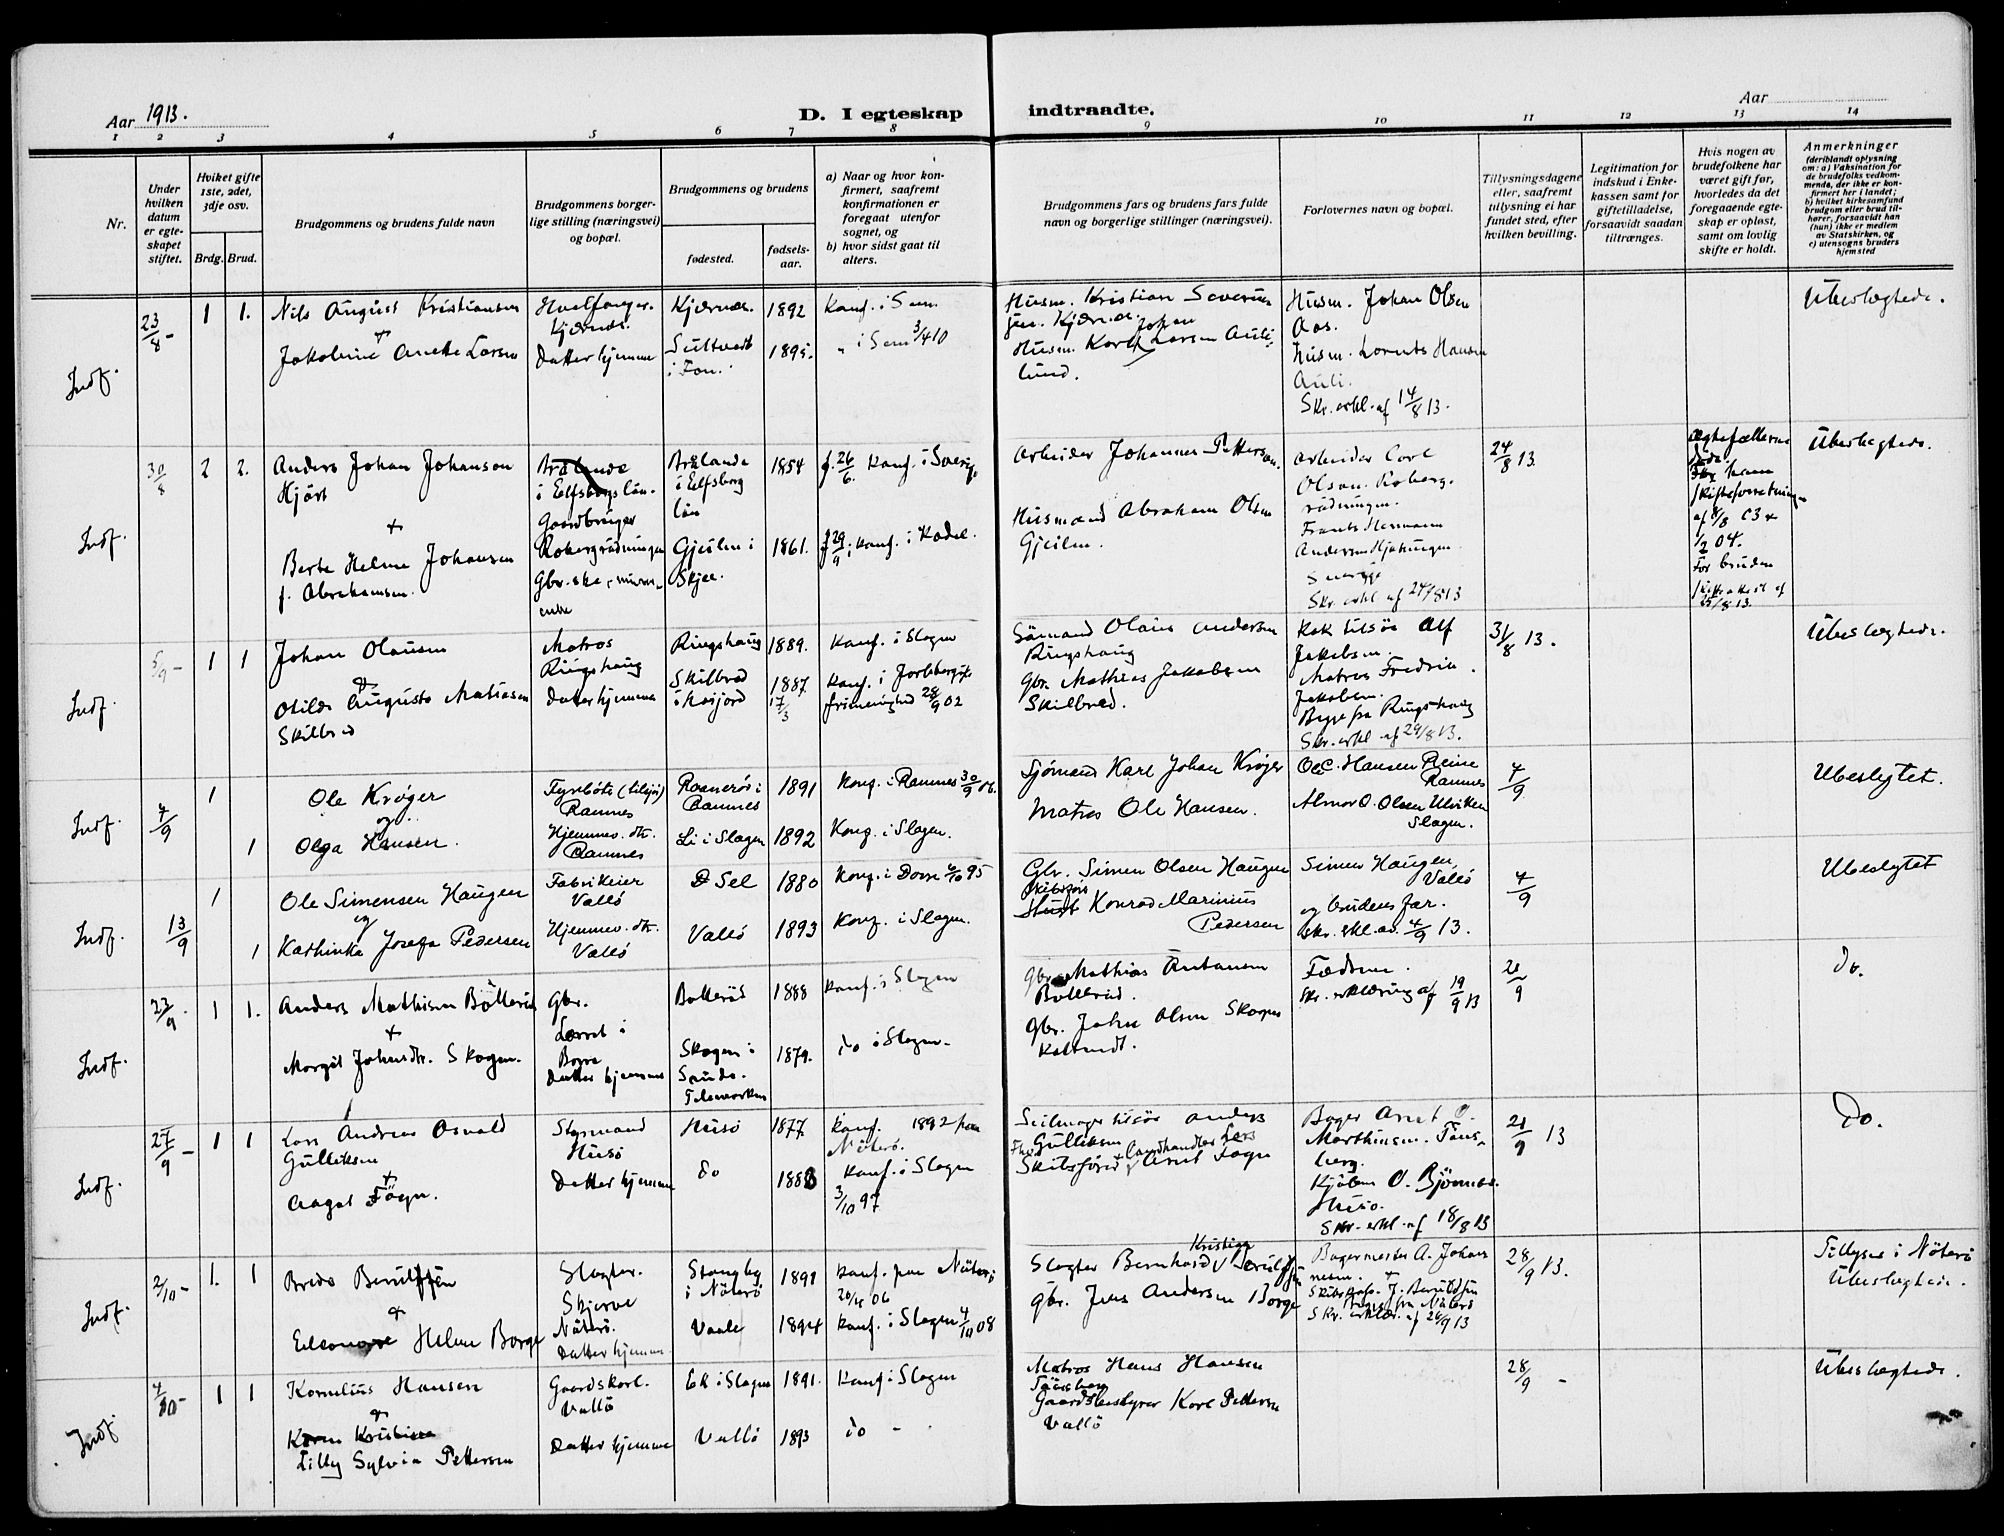 Aar 1913.
D. I egteskap indtraadte.
Aar
1 2 3 4 5 6 7 8 9 10 11 12 13 14
Nr.
Under
hvilken
datum
er egte-
skapet
stiftet.
Hviket gifte
1ste, 2det,
3dje osv.
Brdg. Brud.
Brudgommens og brudens fulde navn
Brudgommens borger-
lige stilling (næringsvei)
og bopæl.
Brudgommens og brudens
fødested.
fødsels-
aar.
a) Naar og hvor kon-
firmert, saafremt
konfirmationen er
foregaat utenfor
sognet, og
b) hvor sidst gaat til
alters.
Brudgommens fars og brudens fars fulde
navn og borgerlige stillinger (næringsvei).
Forlovernes navn og bopæl.
Tillysningsdagene
eller, saafremt
tillysning ei har
fundet sted, efter
hvilken bevilling.
Legitimation for
indskud i Enke-
kassen samt for
giftetilladelse,
forsaavidt saadan
tiltrænges.
Hvis nogen av
brudefolkene har
været gift før,
hvorledes da det
foregaaende egte-
skap er opløst,
samt om lovlig
skifte er holdt.
Anmerkninger
(deriblandt oplysning
om: a) Vaksination for
de brudefolks vedkom-
mende, der ikke er kon-
firmert her i landet;
b) hvilket kirkesamfund
brudgom eller brud til-
hører, forsaavidt han
(hun) ikke er medlem
av Statskirken, og
c) utensogns bruders
hjemsted
Indf.
23/8 -
1 1.
Nils August Kristiansen
+
Jakobine Anette Larsen
Hvalfanger.
Kjærnæs.
Datter hjemme
Kjærnæs.
i Fon.
1892
1895.
Konf. i Sem.
" i Sem 3/4 10
Husm. Kristian Severin
Kjærnæs.
Husm. Karl Johan Larsen Auli
lund.
Husm. Johan Olsen
Aas.
Husm. Lorents Hansen
Auli.
Skr. erkl. af 14/8 13.
Ubeslægtede.
Indf.
30/8
2 2.
Anders Johan Johanson
Hjört
+
Berte Helene Johansen
f. Abrahamsen.
Brålanda
i Elfsborgs län.
Gaardbruger
Brålanda
i Elfsborg
län
Gjeilen i
Skjee.
1854
1861.
f. 26/6. Konf. i Sverig.
f 29/9; konf. i Kodal.
Arbeider Johannes Petterson.
Husmand Abraham Olsen
Gjeilen.
Arbeider Carl
Olson. Roberg.
rådningen.
Frants Hermann
Anderson
Sverige
Skr. erkl af 24/8 13
24/8 13.
Ægtefællerne
døde.
For ham
skifteforretning
af 8/8 03 +
1/2 04.
For bruden
skifteattest af
25/8 13.
Ubeslægtede.
Indf.
5/9 -
1 1
Johan Olausen
+
Otilde Augusta Matiasen
Skilbred
Matros
Ringshaug
Datter hjemme
Ringshaug
Skilbred
1889.
1887.
17/3
Konf. i Slagen
Konf. i Jarlsberg
frimenighed 28/9 02
Sömand Olaus Andersen
Ringshaug
Gbr. Mathias Jakobsen
Skilbred.
Kok tilsös Alf
Jakobsen.
Matros Fredrik
Jakobsen.
Begge fra Ringshaug
Skr. erkl af 29/8 13.
31/8 13.
Ubeslægtede.
Indf.
7/9
1
1
Ole Krøger
og
Olga Hansen.
Fyrbøter (tilsjøs)
Ramnes
Hjemmev. dtr.
Ramnes
Ramnes
Li i Slagen
1891
1892
Konf. i Ramnes 30/9 06.
Konf. i Slagen.
Sjømand Karl Johan Krøger
Matros Ole Hansen.
Ole Hansen Reine
Ramnes
Slagen.
7/9
Ubeslegtet.
Indf.
13/9
1
1
Ole Simensen Haugen
og
Kathinka Josefa Pedersen
Vallö
Hjemmev. dtr.
Vallö
Sel
Vallö
1880
1893
Konf. i Dovre 95
Konf. i Slagen.
Gbr. Simen Olsen Haugen
Konrad Marinius
Pedersen
Simen Haugen,
Vallö
og brudens far.
Skr. erkl. av. 4/9 13.
7/9
Ubeslegtet
Indf.
23/9.
1 1.
Anders Mathisen Bölleröd
+
Margit Johnsdtr. Skogen.
Gbr.
Borre
Datter hjemme
Bølleröd
Skogen i
Sauda.
Telemarken
1888
1879.
Konf. i Slagen
do i Slagen.
Gbr. Mathias Antonsen
Bölleröd.
Gbr. John Olsen Skogen
Fædrene.
Skr. erklæring af 19/9 13
21/9
do.
Indf.
27/9 -
1 1
Lars Andreas Osvald
Gulliksen
+
Aagot Fögn.
Styrmand
Husö
Datter hjemme
Husö
do
1877.
1888
Konf. 1892 paa
Nöterö.
Konf. i Slagen
3/10 97
Seilmager tilsös Anders
Gulliksen
Skibsförer + Landhandler Lars
Arnt Fogn
Bager Arnt O.
Marthinsen. Töns-
berg.
Kjöbm O. Bjönnes.
Husö.
Skr. erkl. af 18/8 13
21/9 13
do.
Indf.
2/10 -
1. 1
Brede Berulfsen
+
Eleonore Helene Borge
Slagter.
Skjerve
Nöterö.
Datter hjemme
Stangeby
i Nöterö
Vaale
1891
1894
Konf. paa Nöterö
Konf. i Slagen 4/10 08
Slagter Bernhard Kristian Berulfsen
Gbr. Jens Andersen Borge
Bagermester A. Johan
nesen. +
J. Berulfsen
begge fra Nöterö
Skr. erklær. af 26/9 13
28/9 13.
Tillyses i Nöterö
Ubeslægtede.
Indf.
4/10 -
1 1
Kornelius Hansen
+
Karen Kristine
Lilly Sylvia Pettersen
Gaardskarl.
Vallö
Datter hjemme
Ek i Slagen
Vallö
1891.
1893
Konf i Slagen
do -
Matros Hans Hansen
Tönsberg
Gaardsbestyrer Karl Pettersen
Vallö
28/9 -
Ubeslægtede.